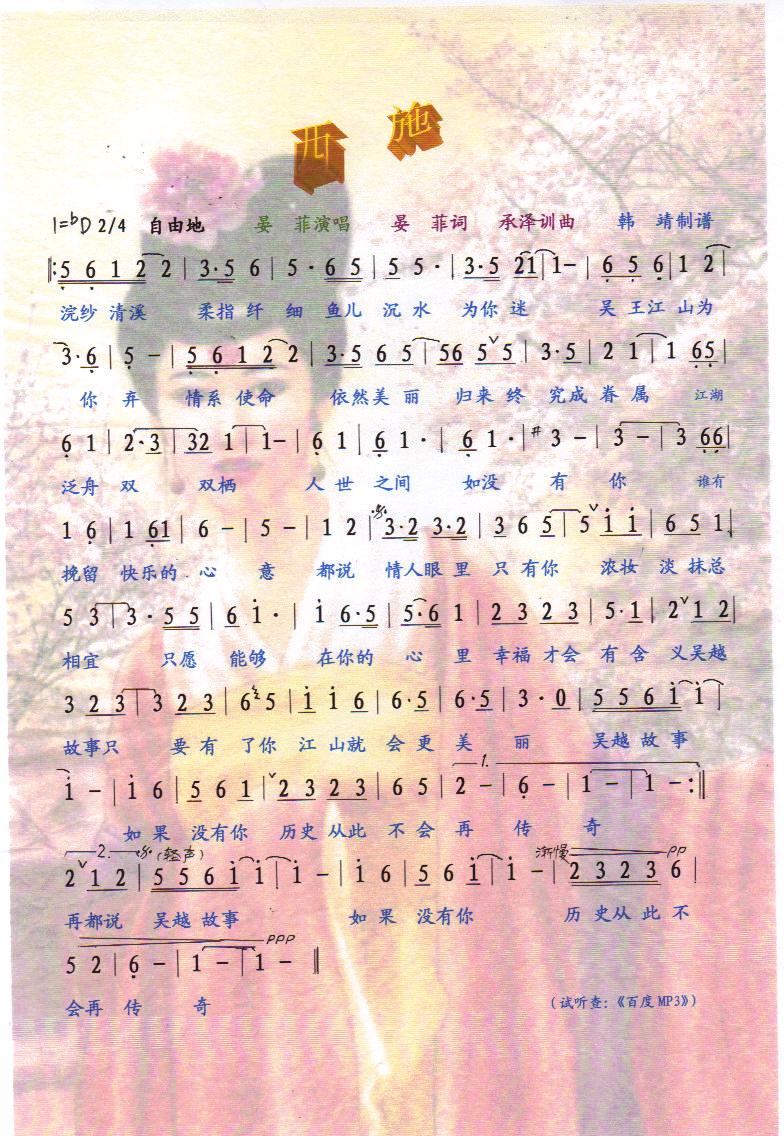 西 施
1=♭D 2/4 自由地 晏 菲演唱 晏 菲词 承泽训曲 韩 靖制谱
‖: 5 6 1 2 2 | 3·5 6 | 5 · 6 5 | 5 5 · | 3·5 21 | 1 – | 6 5 6 | 1 2 |
浣纱 清溪 柔指 纤 细 鱼儿 沉 水 为你 迷 吴 王江 山为
3·6 | 5 – | 5 6 1 2 2 | 3·5 6 5 | 56 5 ∨ 5 | 3·5 | 2 1 | 1 65 |
你 弃 情系 使命 依然美 丽 归来 终 究成 眷 属 江湖
6 1 | 2·3 | 32 1 | 1 – | 6 1 | 6 1 · | 6 1 · | # 3 – | 3 – | 3 66 |
泛舟 双 双栖 人 世 之间 如没 有 你 谁有
1 6 | 1 61 | 6 – | 5 – | 1 2 | 3·2 3·2 | 3 6 5 | 5 ∨ i i | 6 5 1 |
挽留 快乐的 心 意 都说 情人眼 里 只 有你 浓妆 淡 抹总
5 3 | 3 · 5 5 | 6 i · | i 6·5 | 5·6 1 | 2 3 2 3 | 5·1 | 2 ∨ 1 2 |
相宜 只愿 能够 在你的 心 里 幸福 才会 有 含 义吴越
3 2 3 | 3 2 3 | 6 5 | i i 6 | 6·5 | 6·5 | 3 · 0 | 5 5 6 i | i |
故事只 要 有 了你 江 山就 会 更 美 丽 吴越 故 事
1.
i – | i 6 | 5 6 1 | ∨ 2 3 2 3 | 6 5 | 2 – | 6 – | 1 – | 1 – :‖
如 果 没有你 历史 从此 不 会 再 传 奇
2. (轻声) 渐慢 pp
2 ∨ 1 2 | 5 5 6 i i | i – | i 6 | 5 6 i | i – | 2 3 2 3 6 |
再都说 吴越 故事 如 果 没有你 历 史从 此 不
ppp
5 2 | 6 – | 1 – | 1 – ‖
会再 传 奇
(试听查:《百度 MP3》)